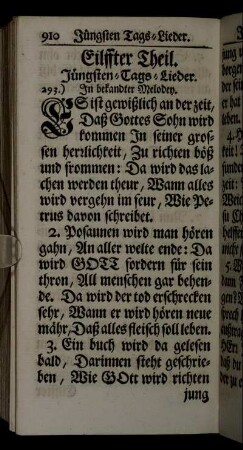 910 Jüngsten Tags-Lieder.
Eilffter Theil.
Jüngsten-Tags-Lieder.
293.) In bekandter Melodey.
ES ist gewißlich an der zeit,
Daß Gottes Sohn wird
kommen In seiner gros-
sen herrlichkeit, Zu richten böß
und frommen: Da wird das la-
chen werden theur, Wann alles
wird vergehn im feur, Wie Pe-
trus davon schreibet.
2. Posaunen wird man hören
gahn, An aller welte ende: Da
wird GOTT fordern für sein
thron, All menschen gar behen-
de. Da wird der tod erschrecken
sehr, Wann er wird hören neue
mähr, Daß alles fleisch soll leben.
3. Ein buch wird da gelesen
bald, Darinnen steht geschrie-
ben, Wie GOtt wird richten
jung